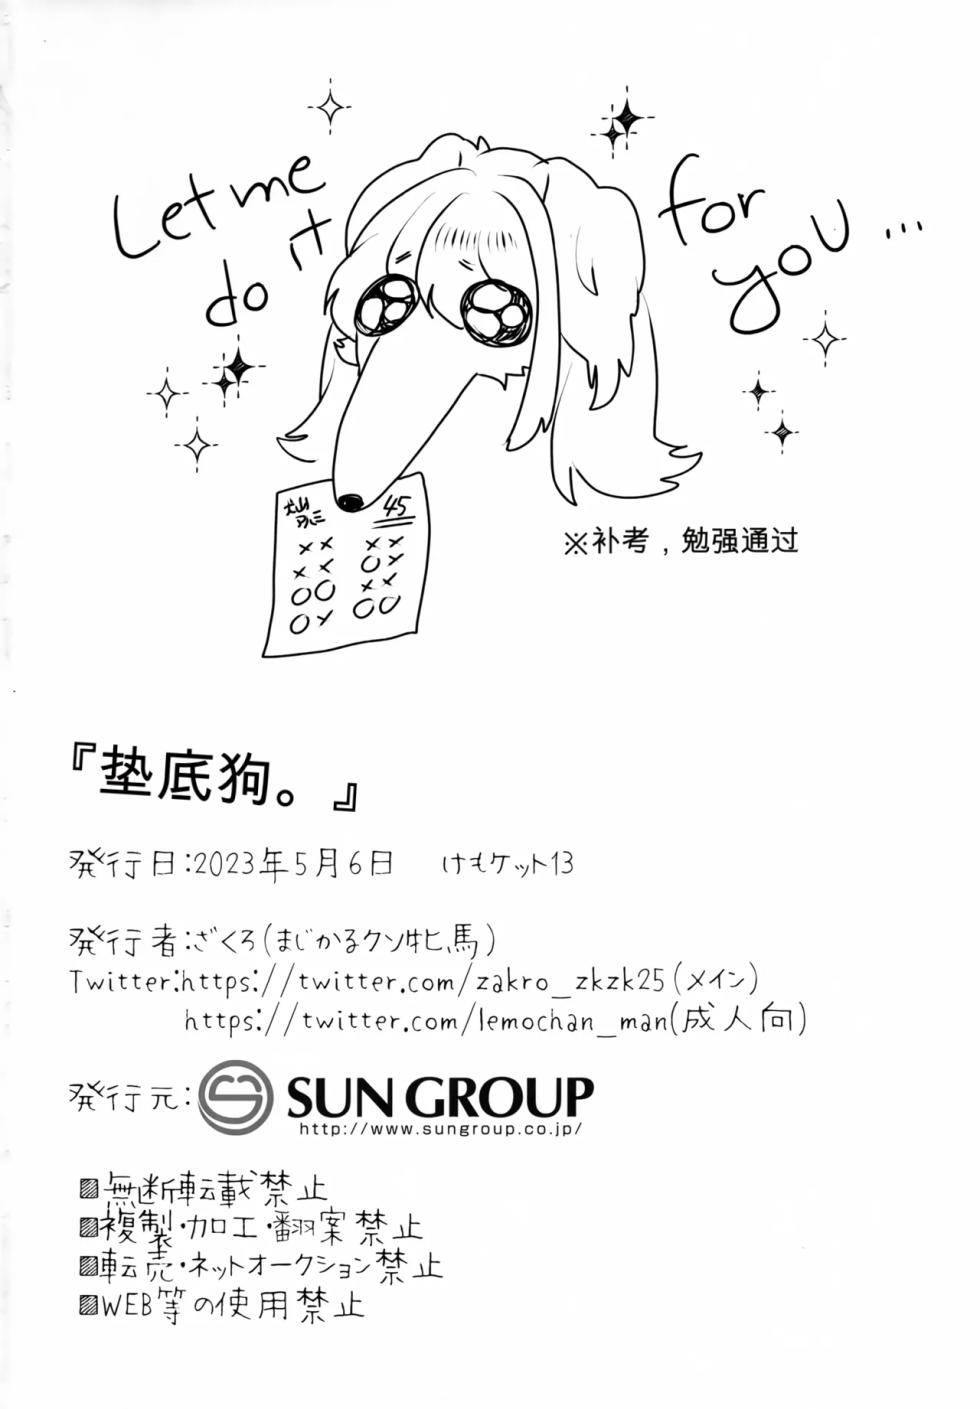 Let me
do it
for
you...
犬山
45
※补考，勉强通过
『垫底狗。』
発行日:2023年5月6日　けもケット13
発行者:ざくろ(まじかるクソ牝馬)
Twitter:https://twitter.com/zakro_zkzk25(メイン)
https://twitter.com/lemochan_man(成人向)
発行元:SUN GROUP
http://www.sungroup.co.jp/
▨無断転載禁止
▨複製・加工・翻案禁止
▨転売・ネットオークション禁止
▨WEB等の使用禁止